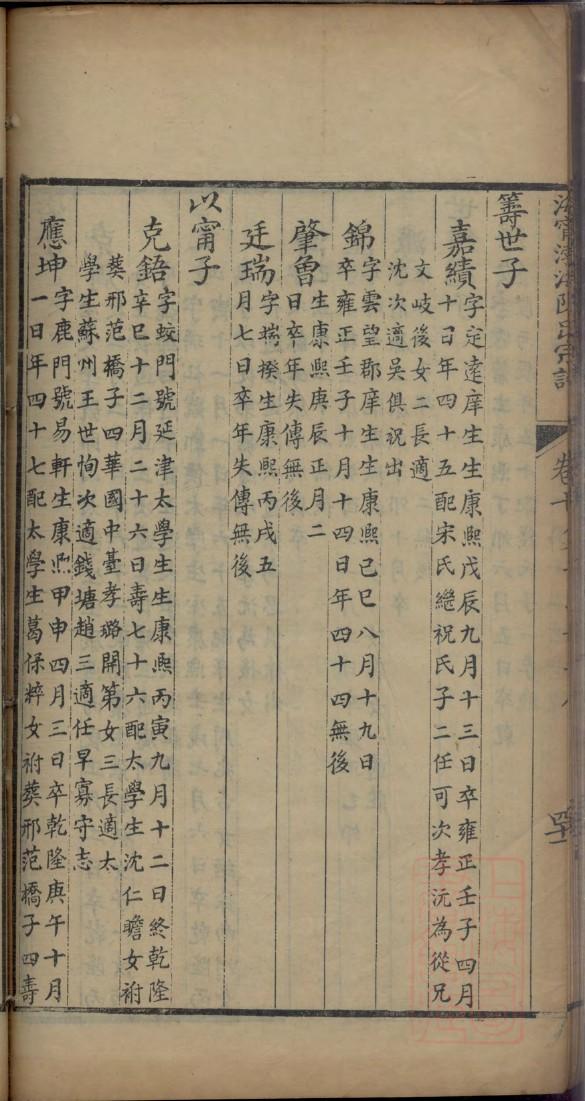 籌世子
嘉績
字定遠庠生生康熙戊辰九月十三日卒雍正壬子四月
十日年四十五配宋氏繼祝氏子二任可次孝沅為從兄
文岐後女二長適
沈次適吳俱祝出
錦
字雲望郡庠生生康熙己巳八月十九日
卒雍正壬子十月十四日年四十四無後
肇曾
生康熙庚辰正月二
日卒年失傳無後
廷瑞
字揣揆生康熙丙戌五
月七日卒年失傳無後
以甯子
克鋙
字蛟門號延津太學生生康熙丙寅九月十二日終乾隆
辛巳十二月二十六日壽七十六配太學生沈仁瞻女祔
葬邢范橋子四華國中臺孝璐開第女三長適太
學生蘇州王世恂次適錢塘趙三適任早寡守志
應坤
字鹿門號易軒生康熙甲申四月三日卒乾隆庚午十月
一日年四十七配太學生葛保粹女祔葬邢范橋子四壽